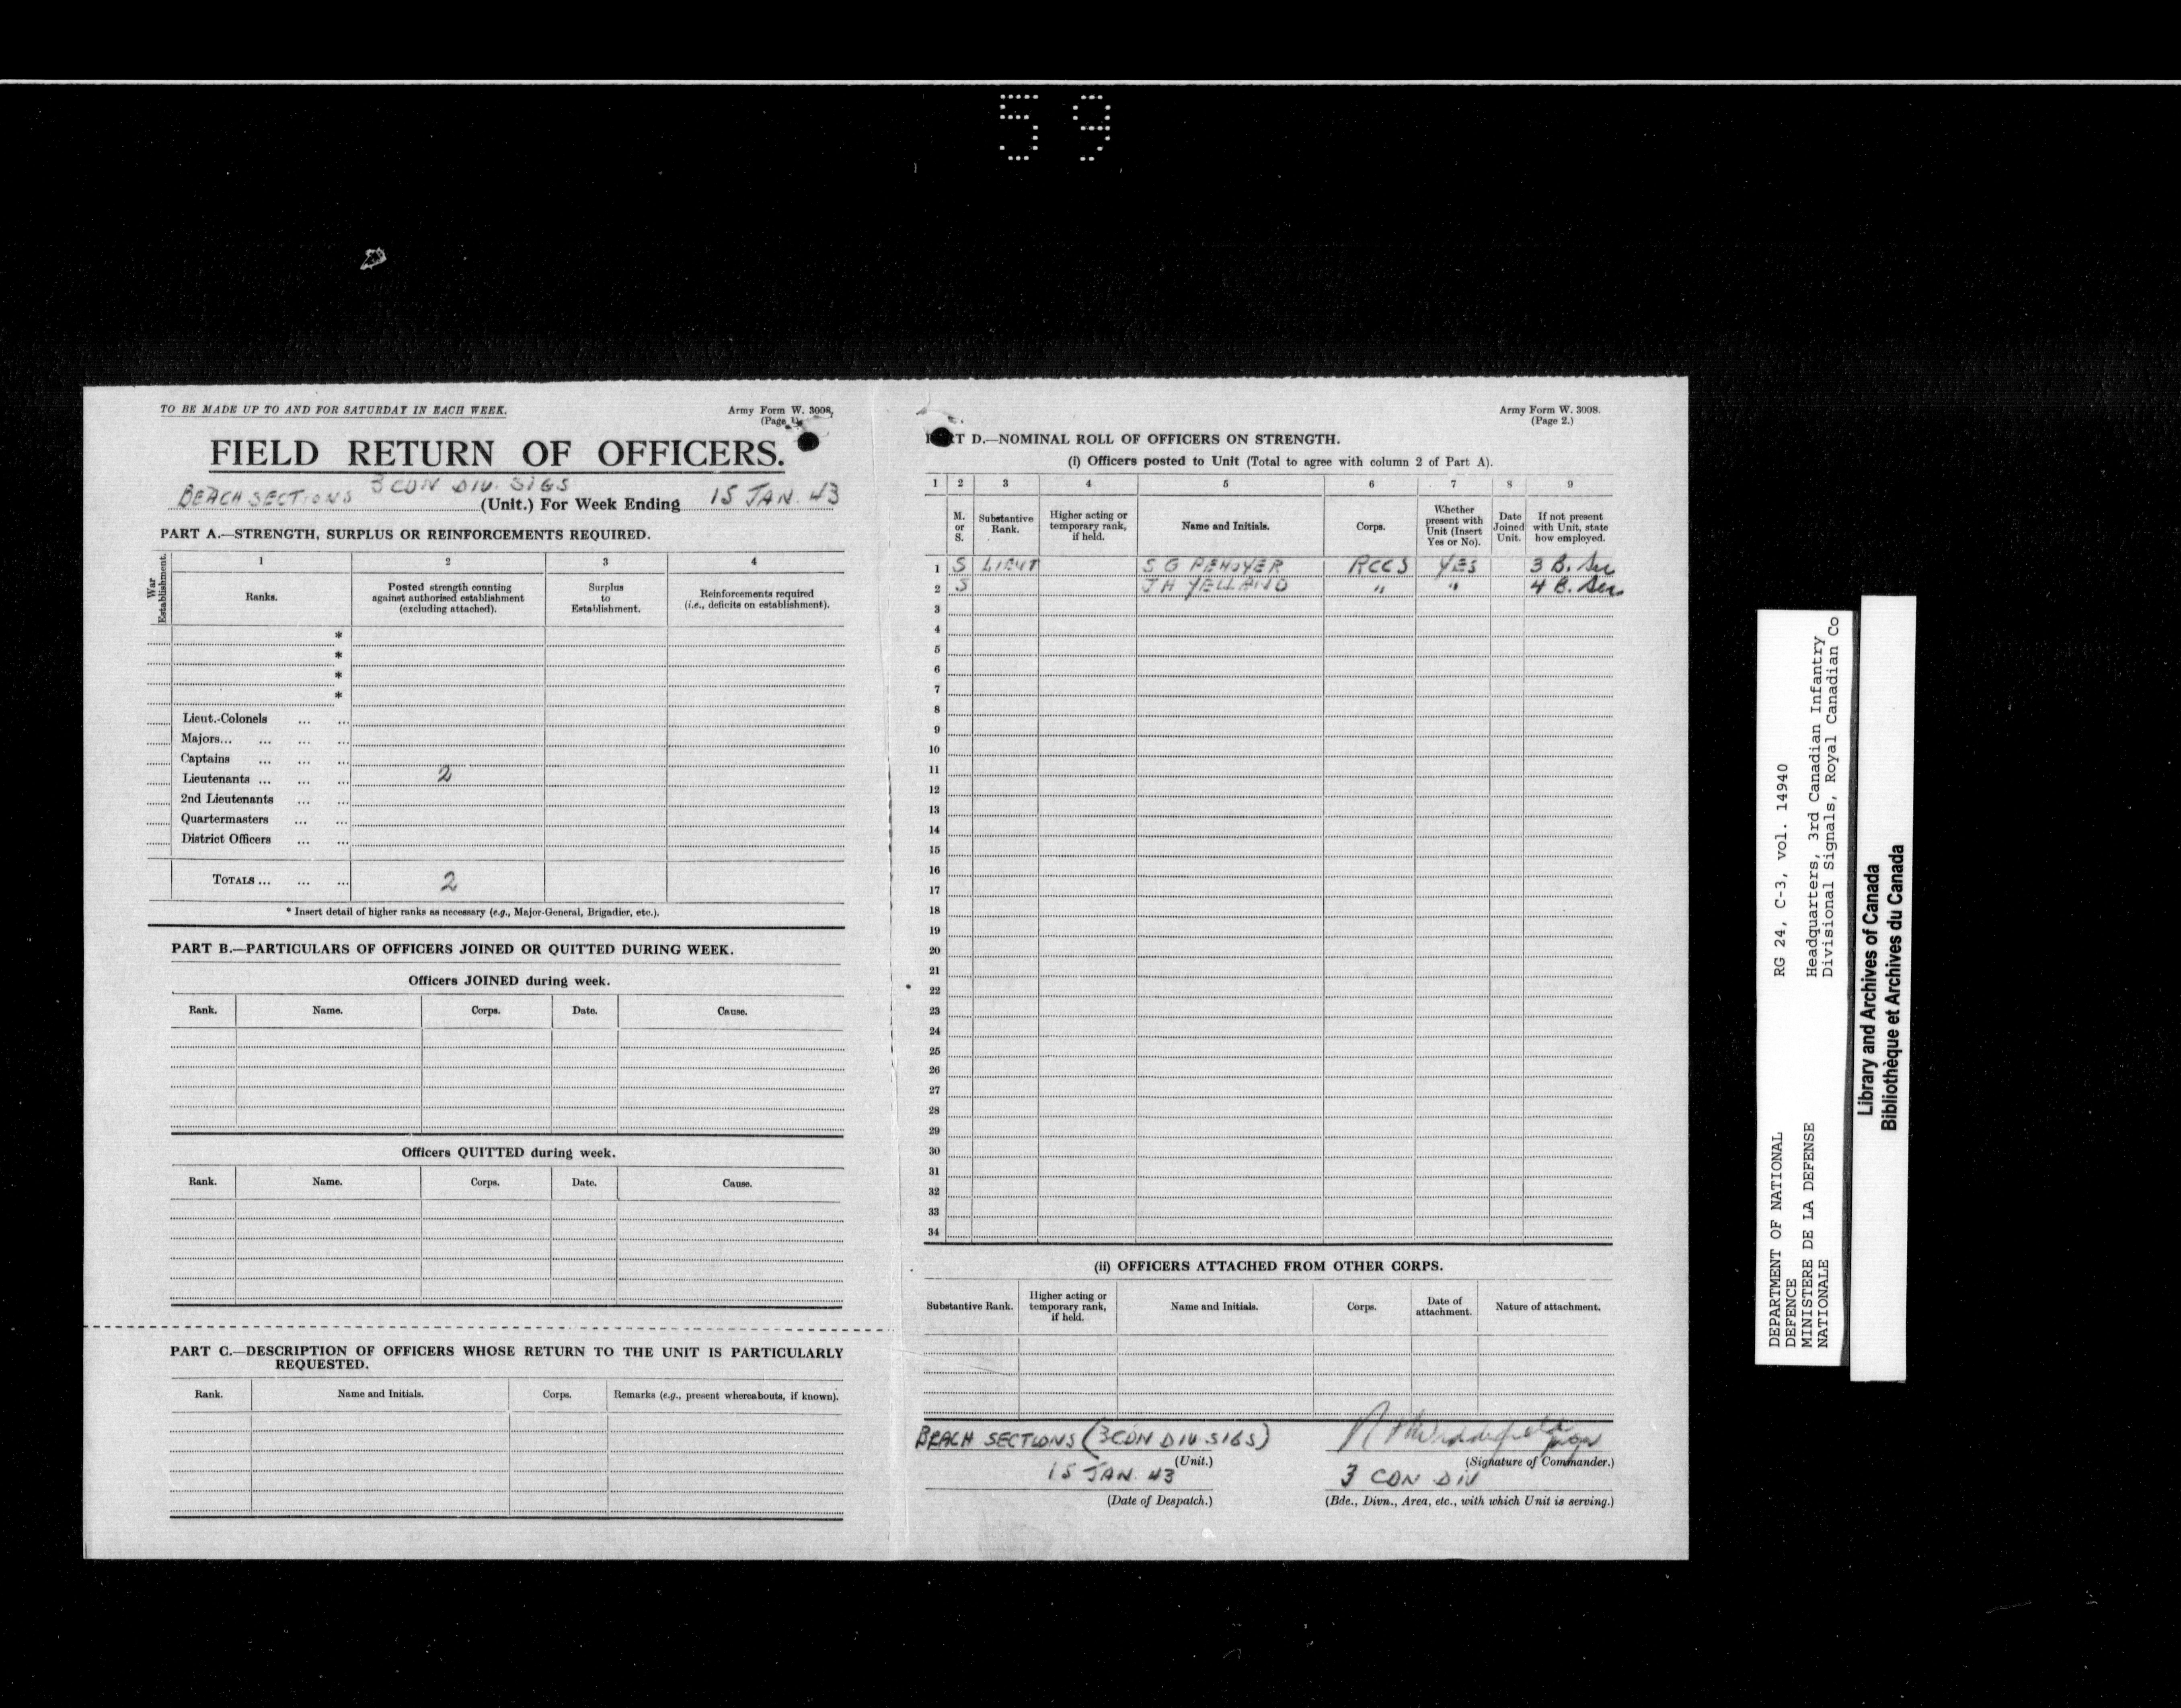 59
TO BE MADE UP TO AND FOR SATURDAY IN EACH WEEK.
Army Form W. 3008.
(Page 1.)
FIELD RETURN OF OFFICERS.
BEACH SECTIONS 3 CDN DIV. SIGS (Unit.) For Week Ending 15 JAN. 43
PART A.—STRENGTH, SURPLUS OR REINFORCEMENTS REQUIRED.
War Establishment.
1 2 3 4
Ranks. Posted strength counting against authorised establishment (excluding attached). Surplus to Establishment. Reinforcements required (i.e., deficits on establishment).
*
*
*
*
Lieut.-Colonels ... ...
Majors... ... ... ...
Captains ... ... ...
Lieutenants ... ... ... 2
2nd Lieutenants ... ...
Quartermasters ... ...
District Officers ... ...
TOTALS ... ... ... 2
* Insert detail of higher ranks as necessary (e.g., Major-General, Brigadier, etc.).
PART B.—PARTICULARS OF OFFICERS JOINED OR QUITTED DURING WEEK.
Officers JOINED during week.
Rank. Name. Corps. Date. Cause.
Officers QUITTED during week.
Rank. Name. Corps. Date. Cause.
PART C.—DESCRIPTION OF OFFICERS WHOSE RETURN TO THE UNIT IS PARTICULARLY
REQUESTED.
Rank. Name and Initials. Corps. Remarks (e.g., present whereabouts, if known).
Army Form W. 3008.
(Page 2.)
PART D.—NOMINAL ROLL OF OFFICERS ON STRENGTH.
(i) Officers posted to Unit (Total to agree with column 2 of Part A).
1 2 3 4 5 6 7 8 9
M. or S. Substantive Rank. Higher acting or temporary rank, if held. Name and Initials. Corps. Whether present with Unit (Insert Yes or No). Date Joined Unit. If not present with Unit, state how employed.
1 S LIEUT S G PENOYER RCCS YES 3 B. Sec
2 S J H YELLAND " " 4 B. Sec
3
4
5
6
7
8
9
10
11
12
13
14
15
16
17
18
19
20
21
22
23
24
25
26
27
28
29
30
31
32
33
34
(ii) OFFICERS ATTACHED FROM OTHER CORPS.
Substantive Rank. Higher acting or temporary rank, if held. Name and Initials. Corps. Date of attachment. Nature of attachment.
BEACH SECTIONS (3 CDN DIV SIGS)
(Unit.) (Signature of Commander.)
15 JAN. 43 3 CDN DIV
(Date of Despatch.) (Bde., Divn., Area, etc., with which Unit is serving.)
DEPARTMENT OF NATIONAL
DEFENCE
MINISTERE DE LA DEFENSE
NATIONALE
RG 24, C-3, vol. 14940
Headquarters, 3rd Canadian Infantry
Divisional Signals, Royal Canadian Co
Library and Archives of Canada
Bibliothèque et Archives du Canada